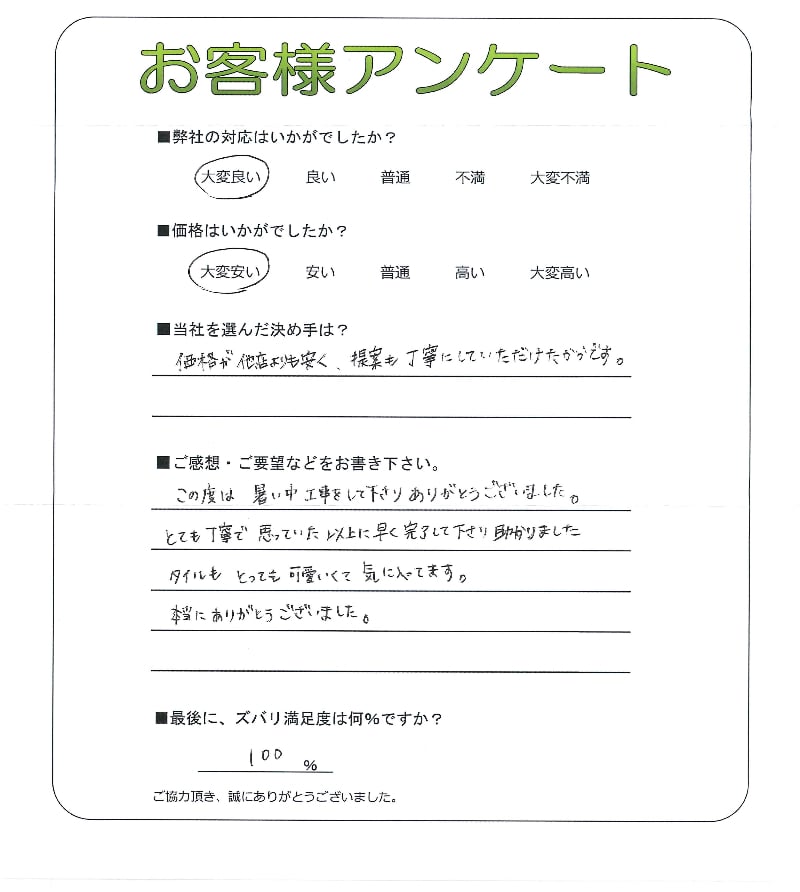 お客様アンケート
■弊社の対応はいかがでしたか？
大変良い 良い 普通 不満 大変不満
■価格はいかがでしたか？
大変安い 安い 普通 高い 大変高い
■当社を選んだ決め手は？
価格が他店よりも安く、提案も丁寧にしていただけたからです。
■ご感想・ご要望などをお書き下さい。
この度は暑い中工事をして下さりありがとうございました。
とても丁寧で思っていた以上に早く完了して下さり助かりました
タイルもとっても可愛いくて気に入ってます。
本当にありがとうございました。
■最後に、ズバリ満足度は何%ですか？
100 %
ご協力頂き、誠にありがとうございました。